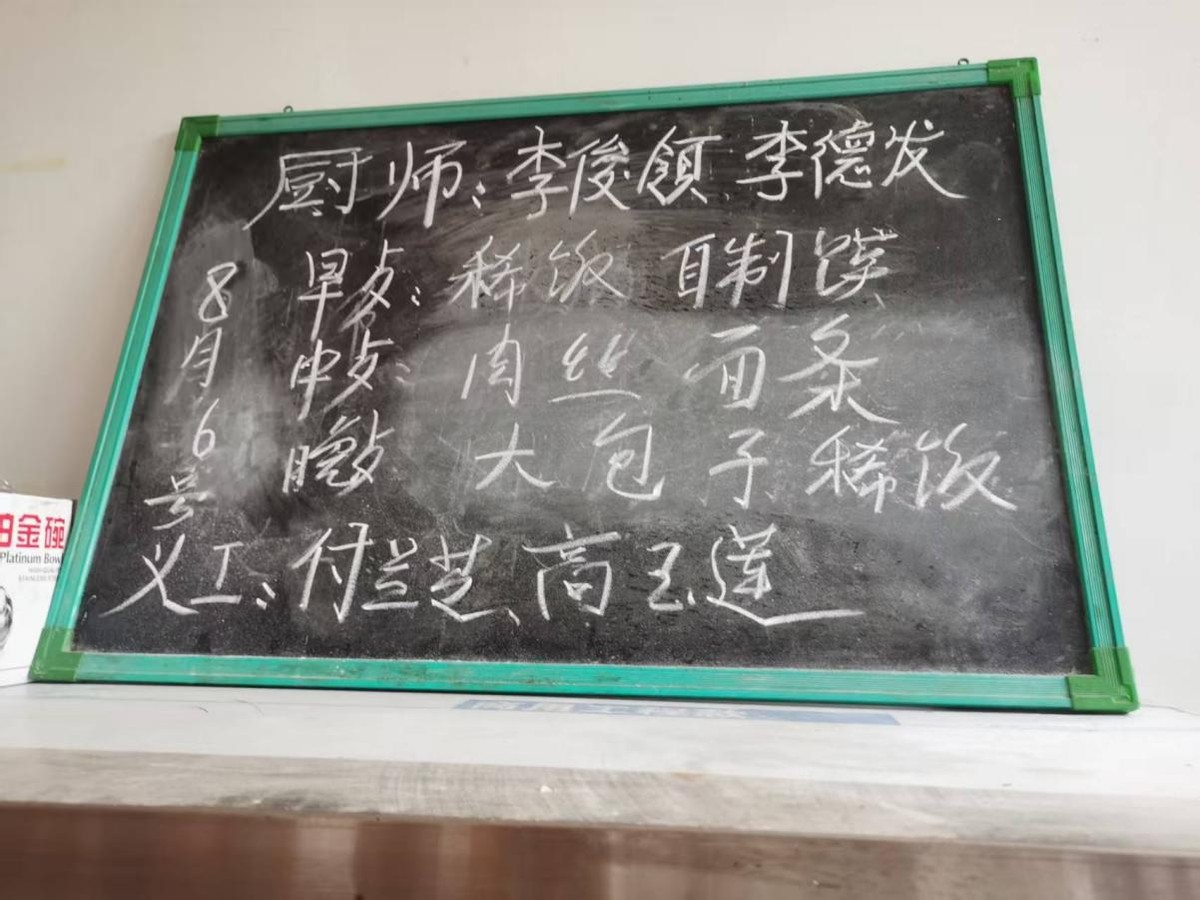 厨师：李俊领 李德发
8月6号
早点：稀饭 自制馍
中点：肉丝面条
晚点 大包子稀饭
义工：付兰芝、高玉莲
铂金碗
Platinum Bow